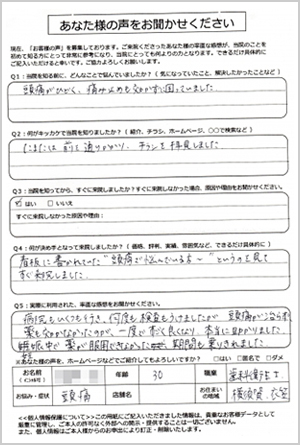 あなた様の声をお聞かせください
現在、「お客様の声」を募集しております。ご来院くださったあなた様の率直な感想が、当院のことを
初めて知る方にとって非常に参考になり、当院にとっても何よりの力となります。できるだけ具体的に
ご記入いただけると幸いです。ご協力よろしくお願いします。
Q1:当院を知る前に、どんなことで悩んでいましたか?(気になっていたこと、解決したかったことなど)
頭痛がひどく、痛み止めも効かず困っていました。
Q2:何がキッカケで当院を知りましたか?(紹介、チラシ、ホームページ、○○で検索など)
たまたま前を通りかかり、チラシを拝見しました
Q3:当院を知ってから、すぐに来院しましたか?すぐに来院しなかった場合、原因や理由をお聞かせください。
はい いいえ
すぐに来院しなかった原因や理由:
Q4:何が決め手となって来院しましたか?(価格、評判、実績、雰囲気など、できるだけ具体的に)
看板に書かれていた"頭痛で悩んでいる方〜"というのを見て
すぐ来院しました。
Q5:実際に利用された、率直な感想をお聞かせください。
病院もいくつも行き、何度も検査もうけましたが、頭痛が治らず
薬も効かなかったのが、一度で軽く良くなり、本当に助かりました。
妊娠中で薬が服用できなかった期間も乗りきれました。
★あなた様の声を、ホームページなどでご紹介してもよろしいですか? →はい 匿名で ダメ
お名前
年齢 30 職業 歯科衛生士
お悩み・症状 頭痛 店舗名 お住まいの地域 横須賀、衣笠
<<個人情報保護について>>この用紙にご記入いただきました情報は、貴重なお客様データとして
厳重に管理し、ご本人の許可なく外部への開示・提供することは一切ございません。
また、個人情報はご本人様からのお申出により訂正・削除いたします。